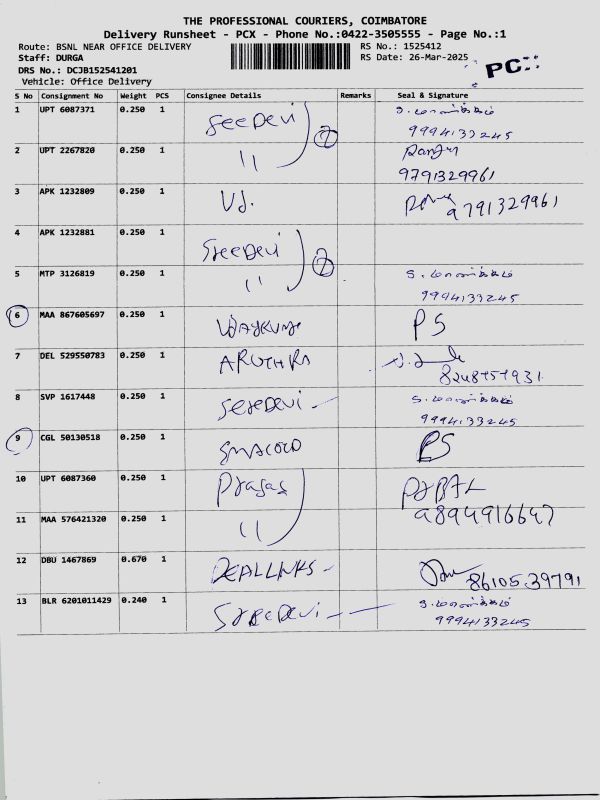 THE PROFESSIONAL COURIERS, COIMBATORE
Delivery Runsheet - PCX - Phone No.:0422-3505555 - Page No.:1
Route: BSNL NEAR OFFICE DELIVERY RS No.: 1525412
Staff: DURGA RS Date: 26-Mar-2025
DRS No.: DCJB152541201 PCX
Vehicle: Office Delivery
S No Consignment No Weight PCS Consignee Details Remarks Seal & Signature
1 UPT 6087371 0.250 1 SreeDevi
9994133245
2 UPT 2267820 0.250 1 "
9791329961
3 APK 1232809 0.250 1 VJ. 9791329961
4 APK 1232881 0.250 1 SreeDevi
5 MTP 3126819 0.250 1 "
9994133245
6 MAA 867605697 0.250 1 PS
7 DEL 529550783 0.250 1 ARUTHRA
8 SVP 1617448 0.250 1 SreeDevi
9994133245
9 CGL 50130518 0.250 1 PS
10 UPT 6087360 0.250 1
11 MAA 576421320 0.250 1 "
12 DBU 1467869 0.670 1 DEALLINKS 86105.39791
13 BLR 6201011429 0.240 1 SreeDevi
9994133245